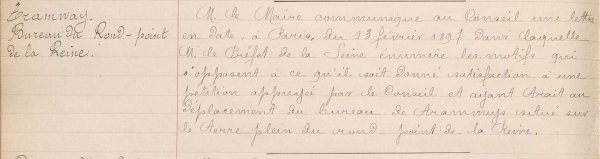 Tramway.
Bureau du Rond-point
de la Reine.
M. le Maire communique au Conseil une lettre
en date, à Paris, du 13 février 1897 dans laquelle
M. le Préfet de la Seine énumère les motifs qui
s'opposent à ce qu'il soit donné satisfaction à une
pétition appuyée par le Conseil et ayant trait au
déplacement du bureau de tramways situé sur
le terre plein du rond-point de la Reine.